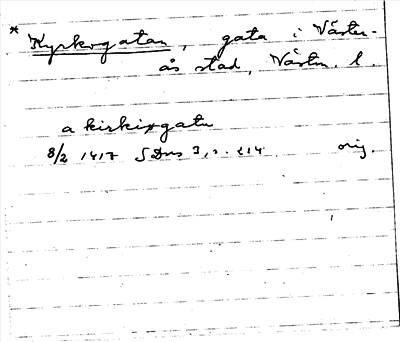 * Kyrkogatan, gata i Väster-
ås stad, Västm. l.
a kirkiogatu
8/2 1417 SDns 3, s. 214 orig.